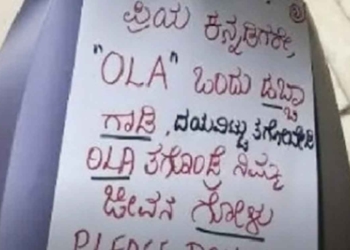 ಪ್ರಿಯ ಕನ್ನಡಿಗರೇ,
"OLA" ಒಂದು ಡಬ್ಬಾ
ಗಾಡಿ, ದಯವಿಟ್ಟು ತಗೋಬೇಡಿ
OLA ತಗೊಂಡ್ರೆ ನಿಮ್ಮ
ಜೀವನ ಗೋಳು
PLEASE